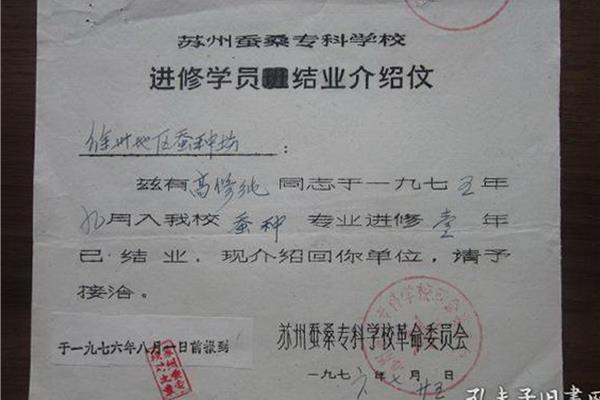 苏州蚕桑专科学校
进修学员结业介绍伩
徐州地区蚕种场：
兹有高修纯同志于一九七五年
九月入我校蚕种专业进修壹年
已结业，现介绍回你单位，请予
接洽。
于一九七六年八月一日前报到
苏州蚕桑专科学校革命委员会
一九七六年七月廿五日
孔夫子旧书网